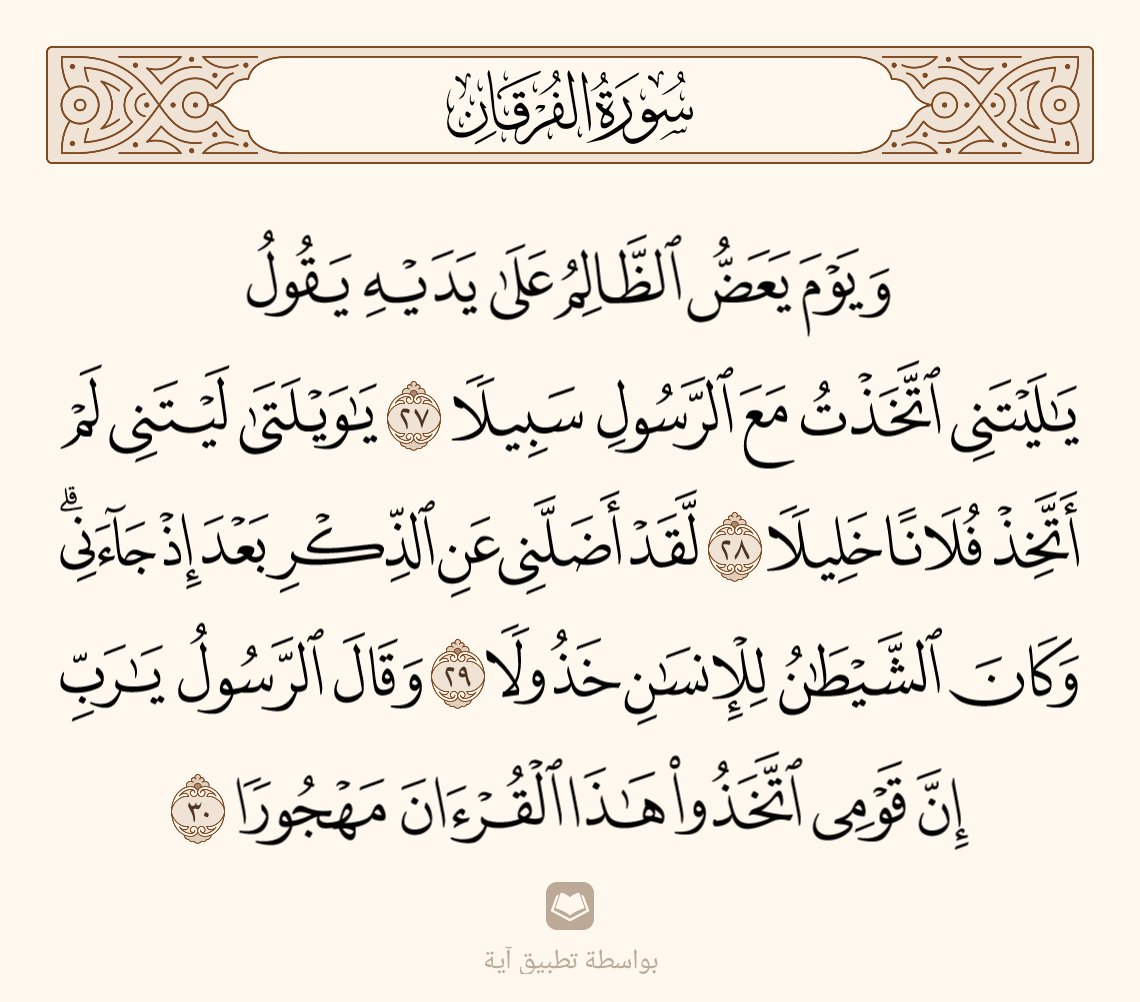 سُورَةُ الفُرْقَانِ
وَيَوْمَ يَعَضُّ ٱلظَّالِمُ عَلَىٰ يَدَيْهِ يَقُولُ
يَـٰلَيْتَنِى ٱتَّخَذْتُ مَعَ ٱلرَّسُولِ سَبِيلًا ٢٧ يَـٰوَيْلَتَىٰ لَيْتَنِى لَمْ
أَتَّخِذْ فُلَانًا خَلِيلًا ٢٨ لَّقَدْ أَضَلَّنِى عَنِ ٱلذِّكْرِ بَعْدَ إِذْ جَآءَنِى ۗ
وَكَانَ ٱلشَّيْطَـٰنُ لِلْإِنسَـٰنِ خَذُولًا ٢٩ وَقَالَ ٱلرَّسُولُ يَـٰرَبِّ
إِنَّ قَوْمِى ٱتَّخَذُوا۟ هَـٰذَا ٱلْقُرْءَانَ مَهْجُورًا ٣٠
بواسطة تطبيق آية